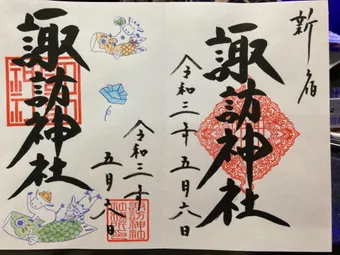 新宿
諏訪神社
令和三年五月六日
諏訪神社
令和三年
五月六日
諏訪神社